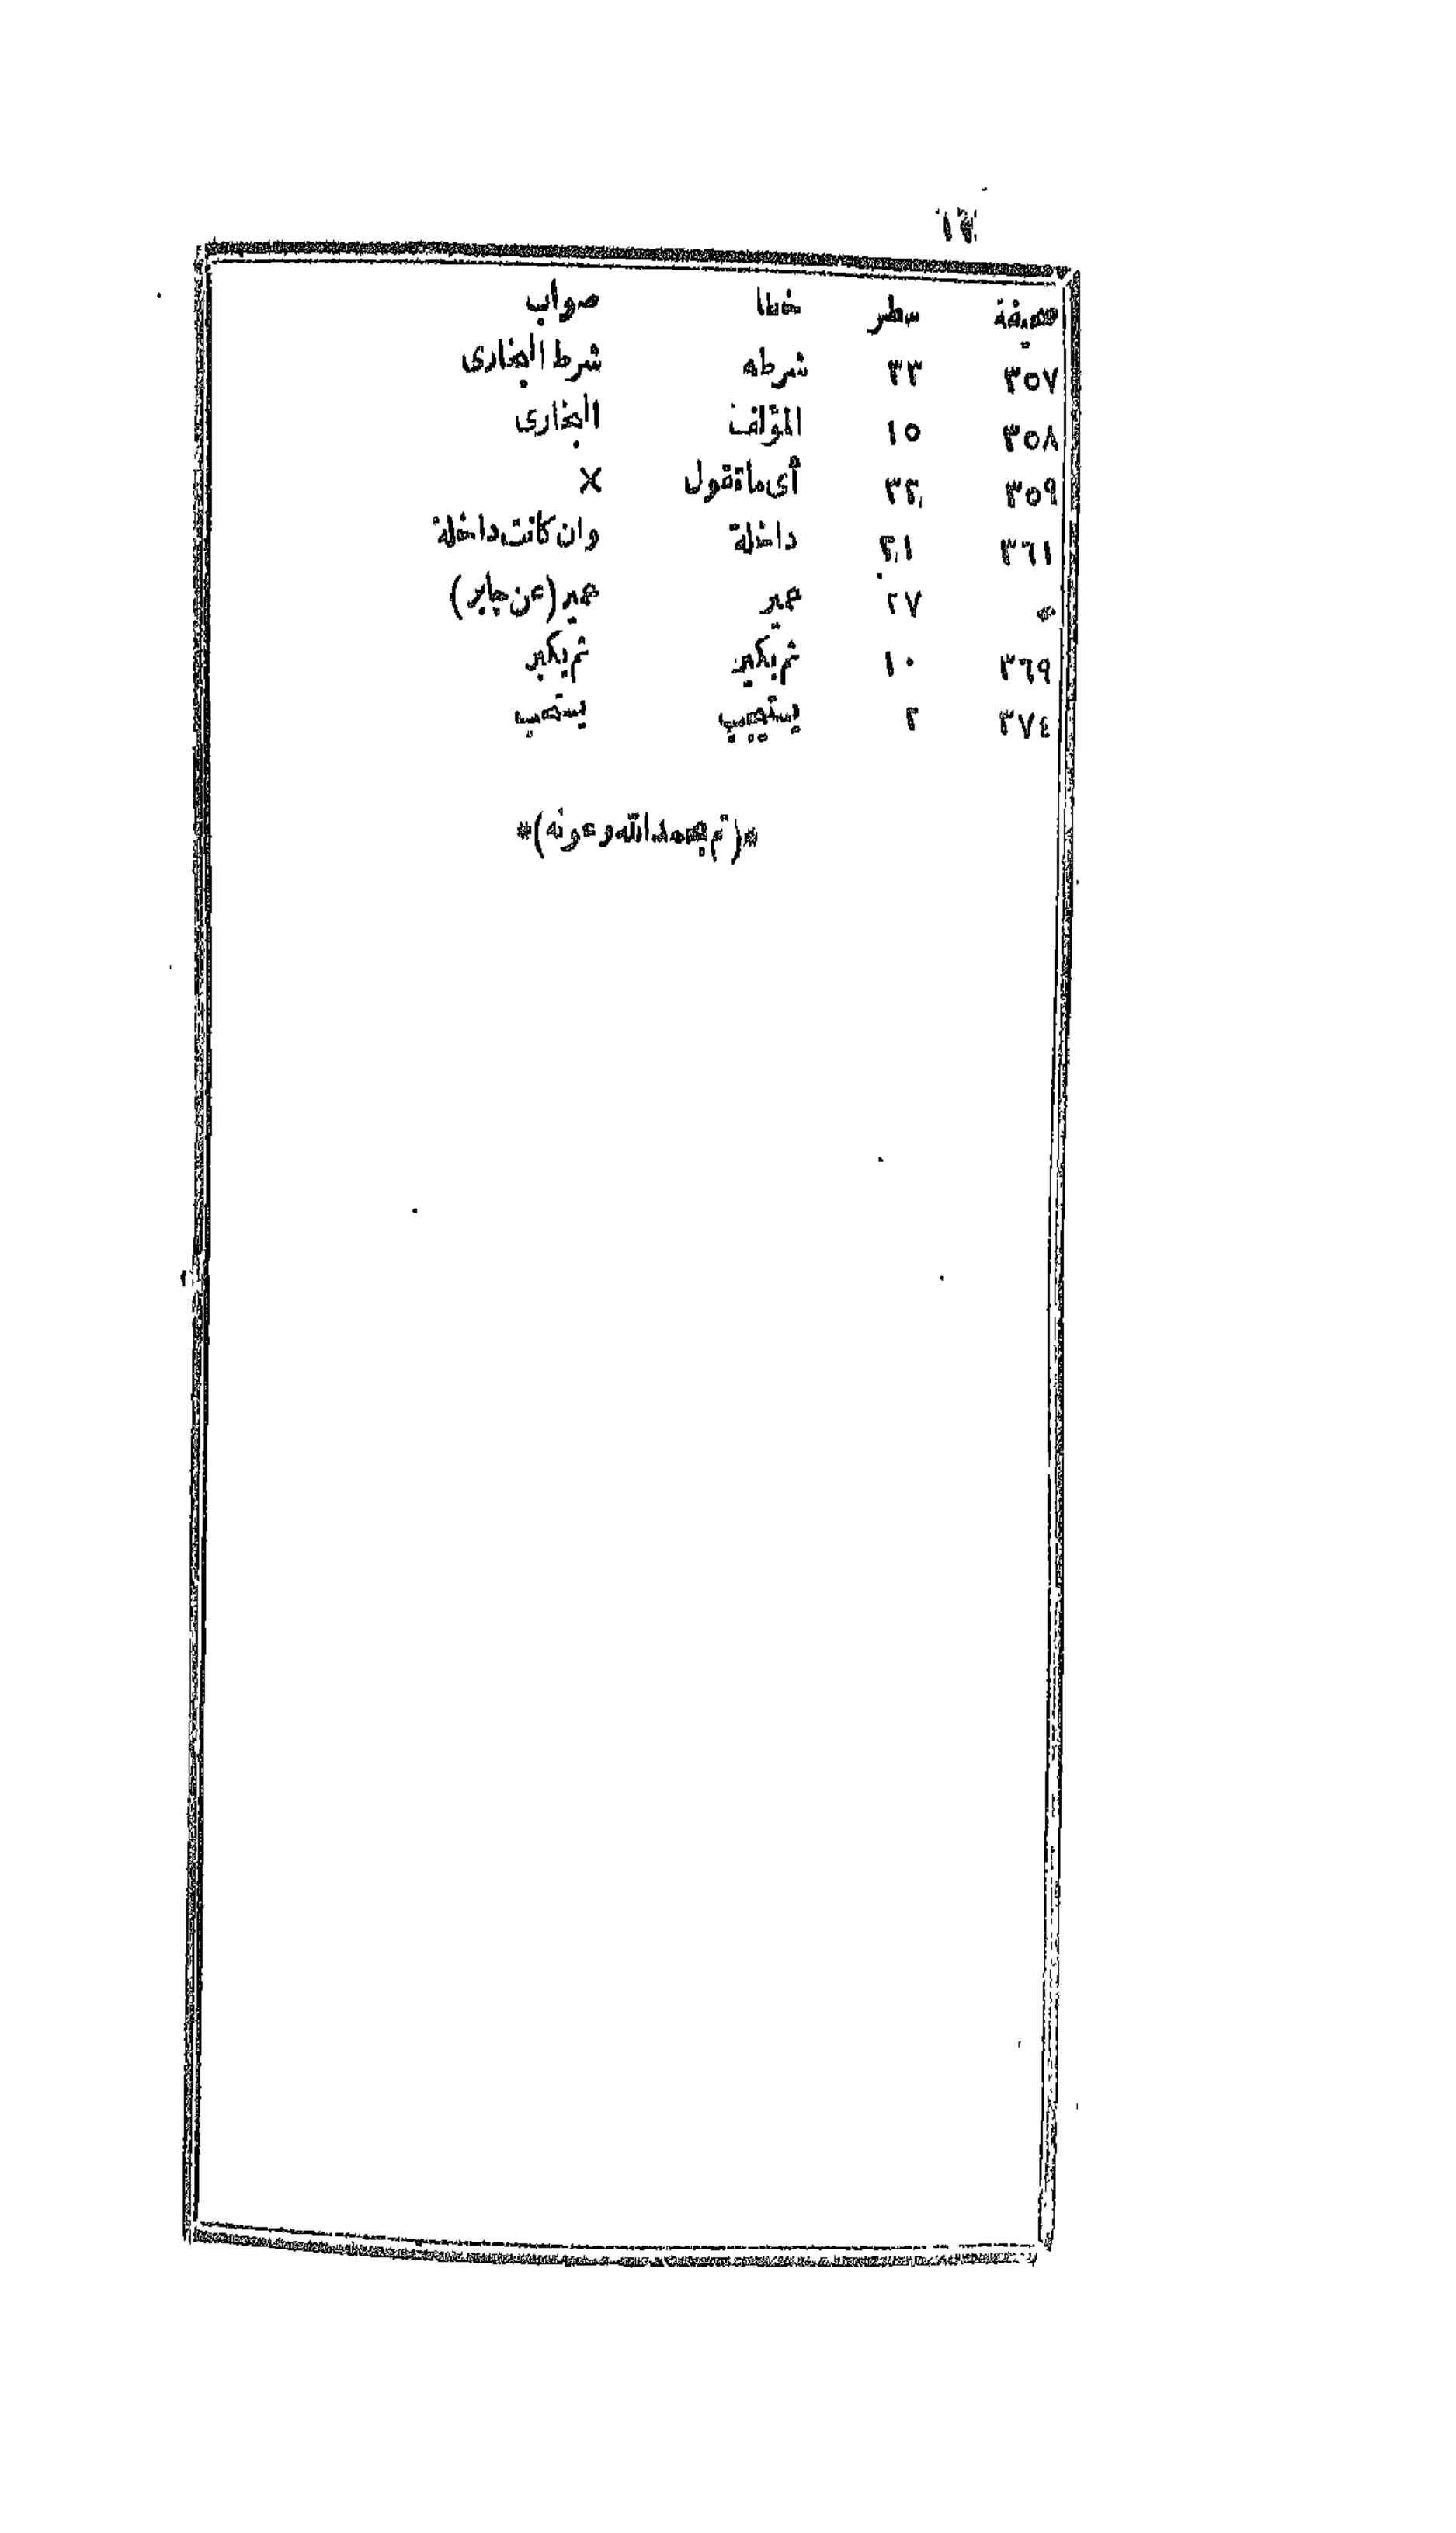 ١٢
صحيفة سطر خطا صواب
٣٥٧ ٣٣ شرطه شرط البخارى
٣٥٨ ١٥ المؤلف البخارى
٣٥٩ ٣٢ أى ماتقول ×
٣٦١ ٢١ داخلة وان كانت داخلة
٢٧ عمير عمير (عن جابر)
٣٦٩ ١٠ ثم بكير ثم يكبر
٣٧٤ ٢ يستحب
*(تم بحمد الله وعونه)*